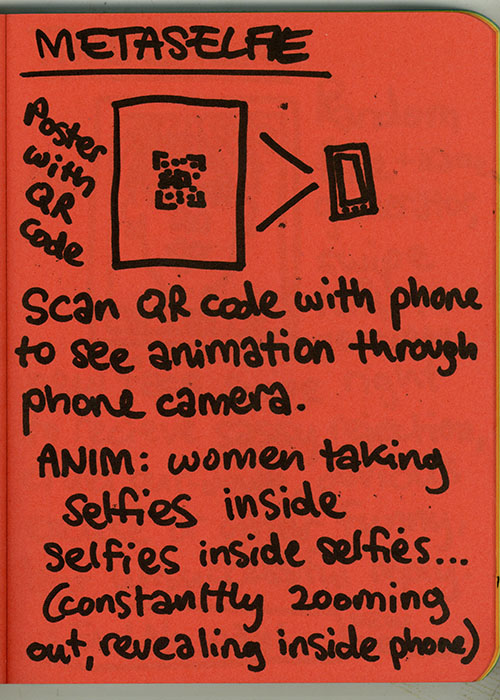 METASELFIE
Poster
with
QR
code
Scan QR code with phone
to see animation through
phone camera.
ANIM: women taking
selfies inside
selfies inside selfies...
(constanttly zooming
out, revealing inside phone)